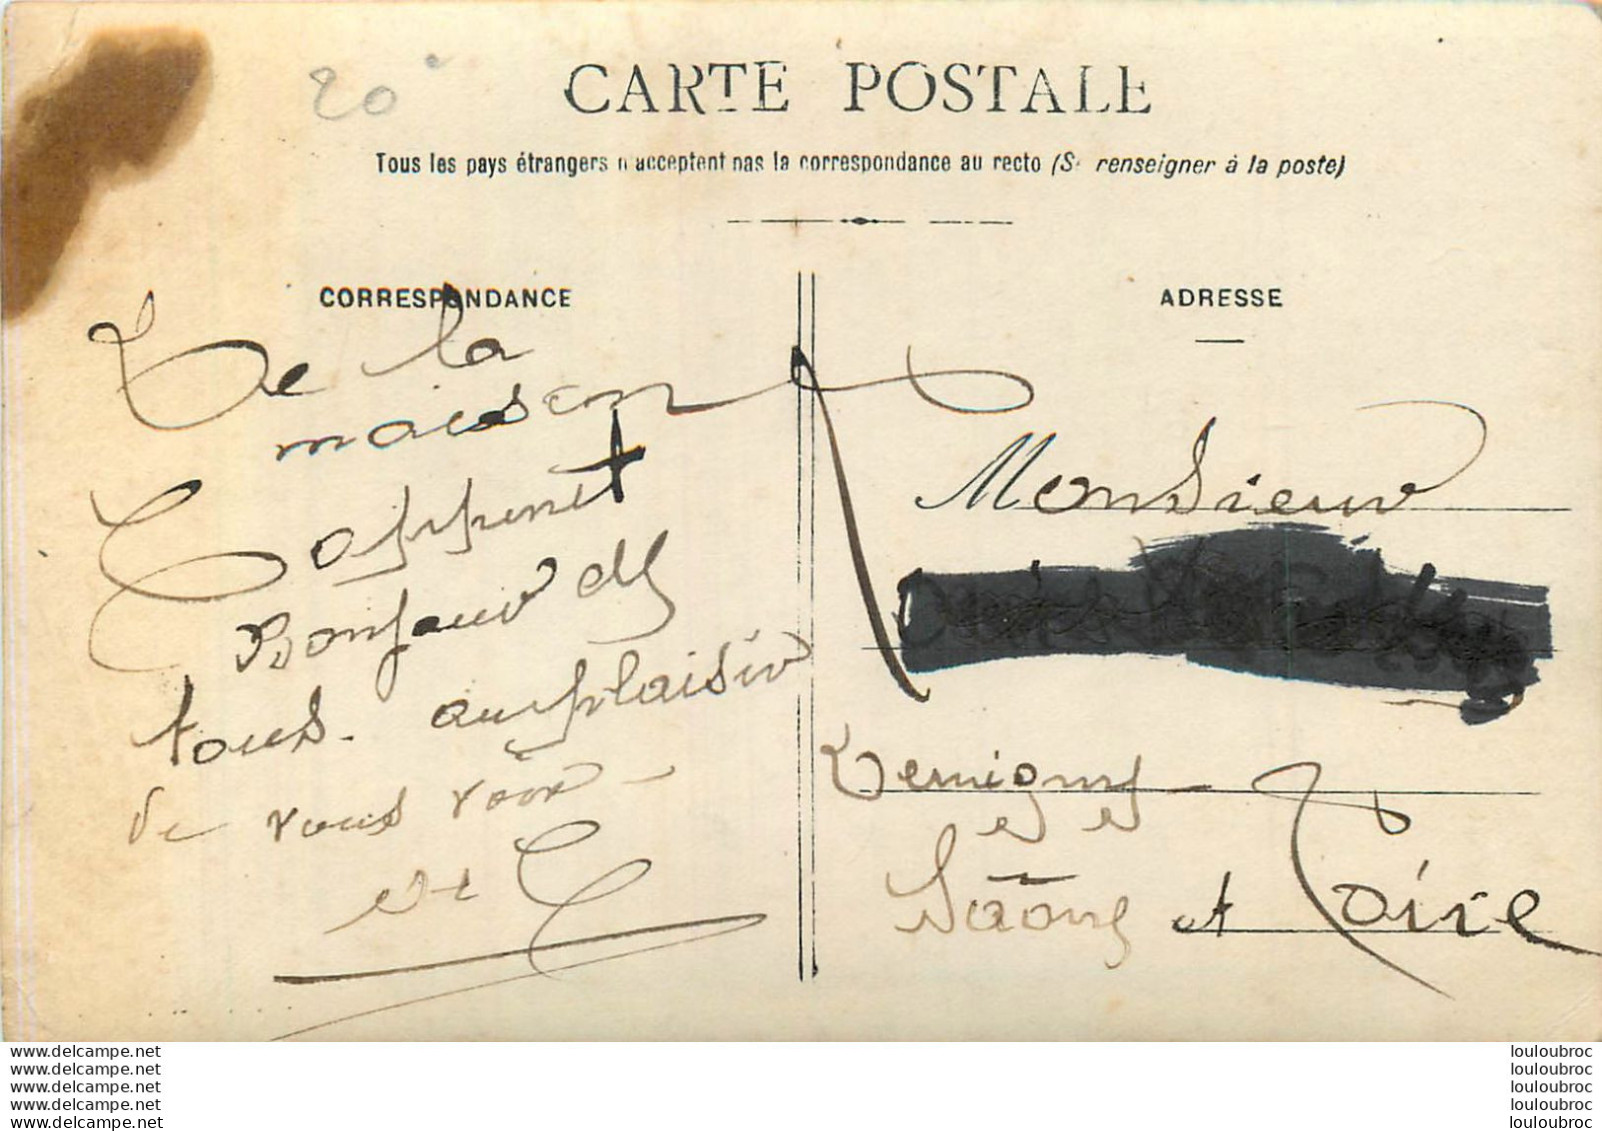 20
CARTE POSTALE
Tous les pays étrangers n'acceptent pas la correspondance au recto (Se renseigner à la poste)
CORRESPONDANCE
De la
maison
Coppenet
Bonjour
tous. au plaisir
de vous voir -
ADRESSE
Monsieur
Remigny -
Saône et Loire
www.delcampe.net
www.delcampe.net
www.delcampe.net
www.delcampe.net
www.delcampe.net
louloubroc
louloubroc
louloubroc
louloubroc
louloubroc